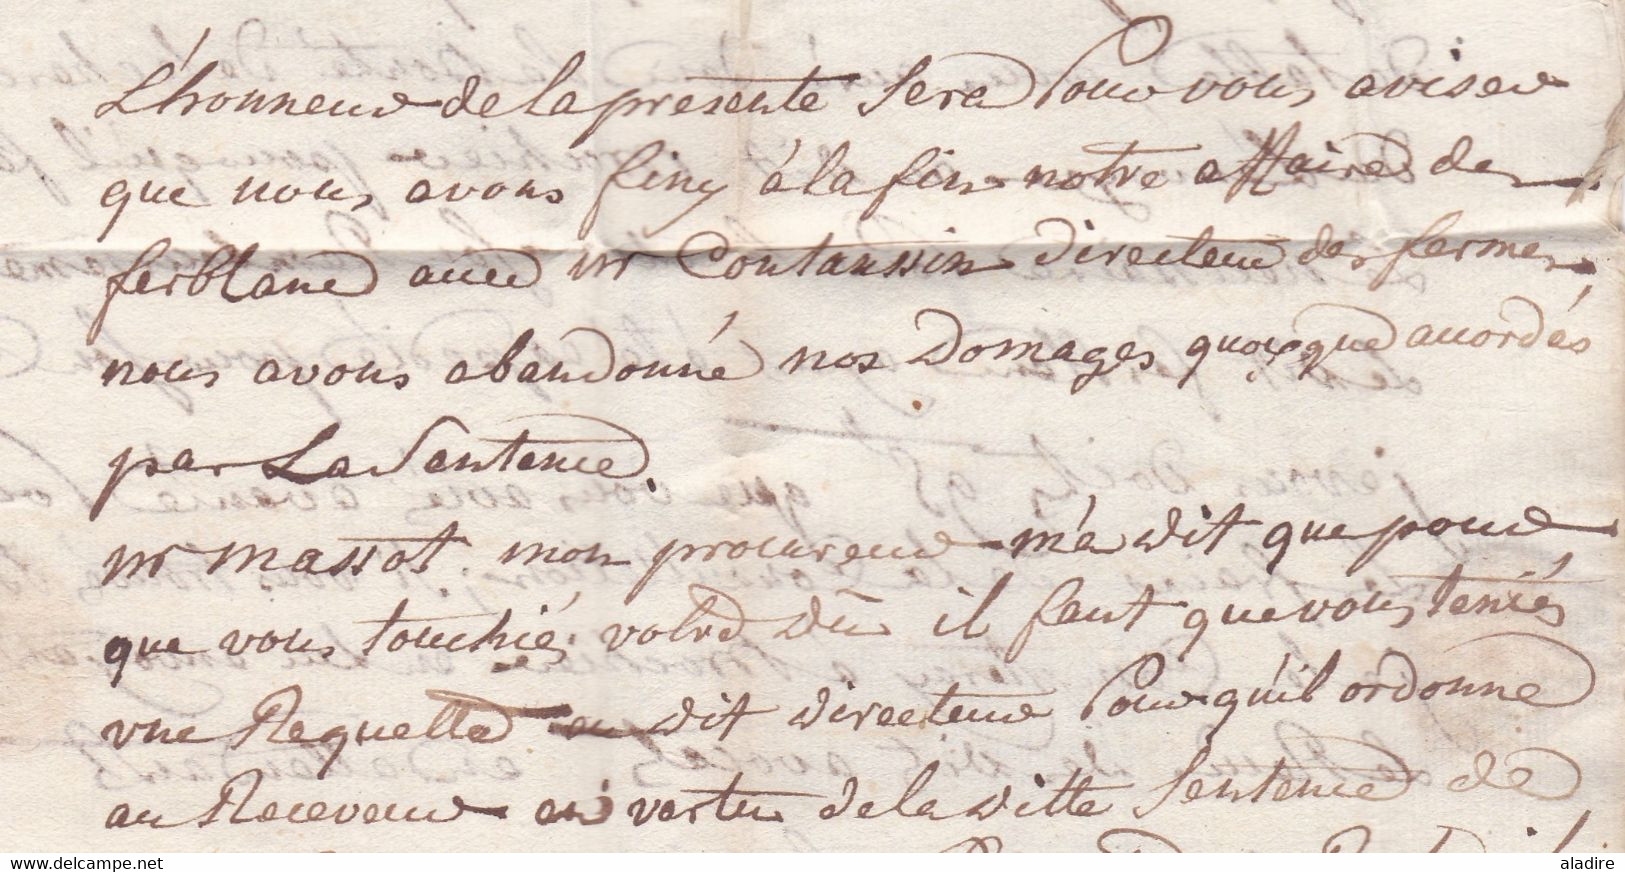 L'honneur de la presente sera Pour vous aviser
que nous avons finy à la fin notre affaire de
ferblanc avec mr Contaussin directeur des fermes,
nous avons abandonné nos domages quoyque accordés
par La Sentence.
mr massot mon procureur m'a dit que pour
que vous touchiés votre dû il faut que vous teniés
vne Requette au dit directeur Pour qu'il ordonne
au Receveur en vertu de la ditte Sentence de
www.delcampe.net
aladire